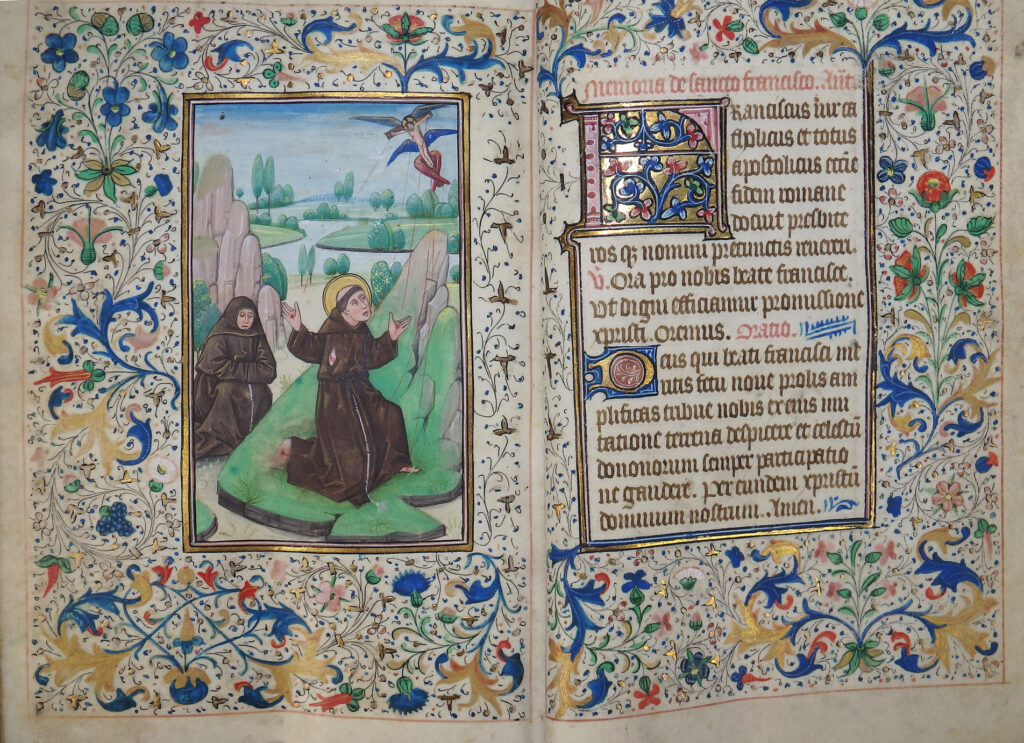 Memoria de sancto francisco. Ant
Franciscus vir ca
tholicus et totus
apostolicus eccie
fidem romane
docuit presbite
ros qꝫ nomini pre cunctis reuereri
V. Ora pro nobis beate francisce.
Vt digni efficiamur promissione
xpristi. Oremus. Oratio.
Deus qui beati francisci me
ritis fetu noue prolis am
plificas tribue nobis ex eius imi
tatione terrena despicere et celestiū
dononorum semper participatio
ne gaudere. Per eundem xpristū
dominum nostrum. Amen.